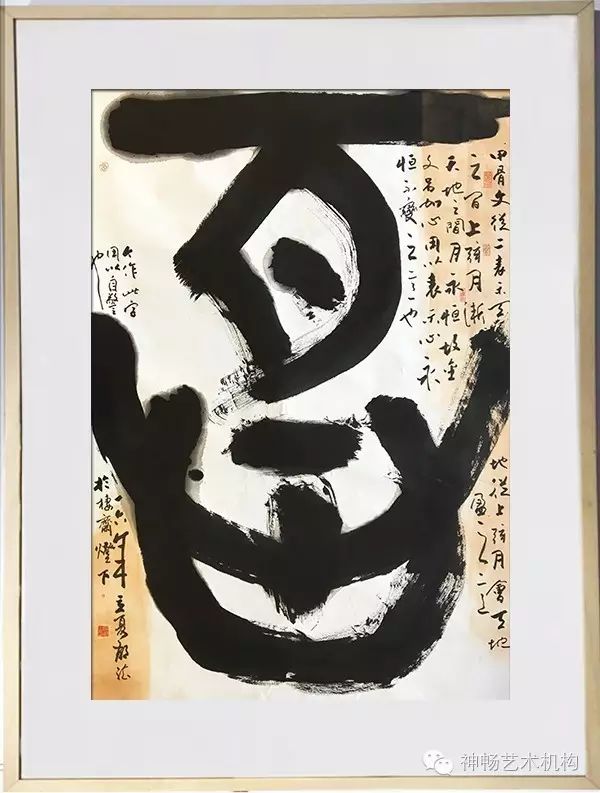 恒
甲骨文從二表示天
之間上弦月漸
天地之間月永恒故金
文另加心用以表示心永
恒不變之意也
地從上弦月會天地
盈之意
今作此字
用以自警
也
一六年立夏
於樓齋燈下
神畅艺术机构